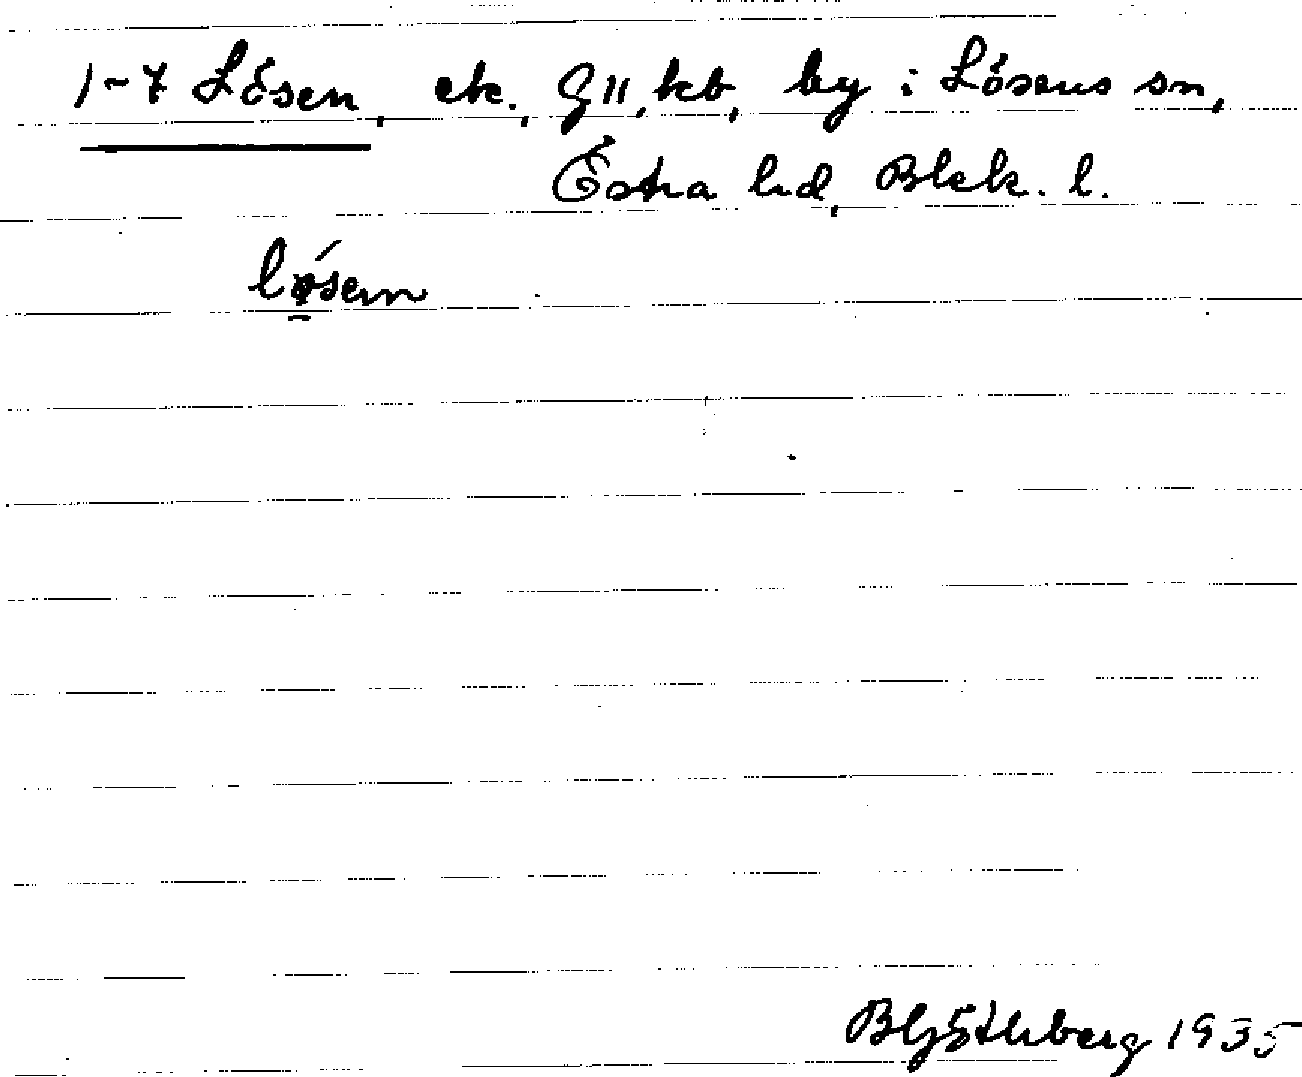 1-7 Lösen, ek., G11, kb, by i Lösens sn,
Östra hd, Blek. l.
lǿ̱sen
BGÖthberg 1935